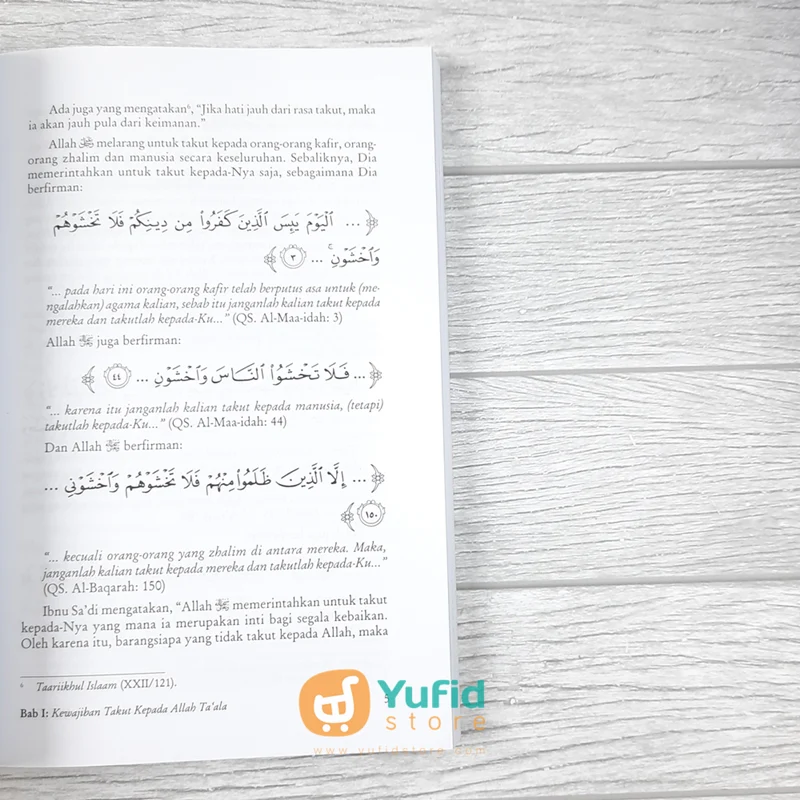 Ada juga yang mengatakan⁶, “Jika hati jauh dari rasa takut, maka
ia akan jauh pula dari keimanan.”
Allah ﷻ melarang untuk takut kepada orang-orang kafir, orang-
orang zhalim dan manusia secara keseluruhan. Sebaliknya, Dia
memerintahkan untuk takut kepada-Nya saja, sebagaimana Dia
berfirman:
﴿ ... ٱلْيَوْمَ يَئِسَ ٱلَّذِينَ كَفَرُوا۟ مِن دِينِكُمْ فَلَا تَخْشَوْهُمْ
وَٱخْشَوْنِ ۚ ... ٣ ﴾
“... pada hari ini orang-orang kafir telah berputus asa untuk (me-
ngalahkan) agama kalian, sebab itu janganlah kalian takut kepada
mereka dan takutlah kepada-Ku...” (QS. Al-Maa-idah: 3)
Allah ﷻ juga berfirman:
﴿ ... فَلَا تَخْشَوُا۟ ٱلنَّاسَ وَٱخْشَوْنِ ... ٤٤ ﴾
“... karena itu janganlah kalian takut kepada manusia, (tetapi)
takutlah kepada-Ku...” (QS. Al-Maa-idah: 44)
Dan Allah ﷻ berfirman:
﴿ ... إِلَّا ٱلَّذِينَ ظَلَمُوا۟ مِنْهُمْ فَلَا تَخْشَوْهُمْ وَٱخْشَوْنِى ...
١٥٠ ﴾
“... kecuali orang-orang yang zhalim di antara mereka. Maka,
janganlah kalian takut kepada mereka dan takutlah kepada-Ku...”
(QS. Al-Baqarah: 150)
Ibnu Sa’di mengatakan, “Allah ﷻ memerintahkan untuk takut
kepada-Nya yang mana ia merupakan inti bagi segala kebaikan.
Oleh karena itu, barangsiapa yang tidak takut kepada Allah, maka
⁶ Taariikhul Islaam (XXII/121).
Bab I: Kewajiban Takut Kepada Allah Ta’ala
Yufid
store
www.yufidstore.com